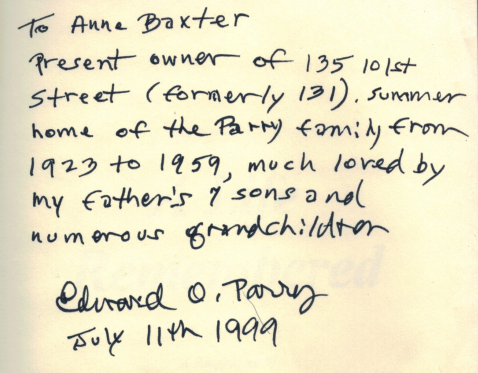 To Anne Baxter
Present owner of 135 101st
Street (formerly 131). summer
home of the Parry family from
1923 to 1959, much loved by
my father's 7 sons and
numerous grandchildren
Edward O. Parry
July 11th 1999